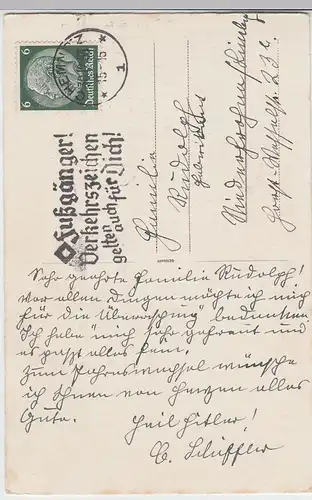 6
Deutsches Reich
CHEMNITZ
* 15-16 *
1
Fußgänger!
Verkehrszeichen
gelten
auch für Dich!
Familie
Rudolph
Niederfrohna
Sehr geehrte Familie Rudolph!
Vor allen Dingen möchte ich mich
für die Überraschung bedanken.
Ich habe mich sehr gefreut und
es paßt alles fein.
Zum Jahreswechsel wünsche
ich Ihnen von Herzen alles
Gute. Heil Hitler!